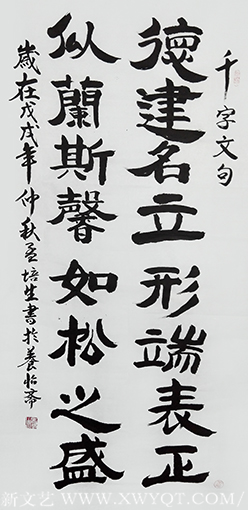 千字文句
德建名立形端表正
似蘭斯馨如松之盛
歲在戊戌年仲秋孟培生書於養怡齋
新文艺 WWW.XWYQT.COM